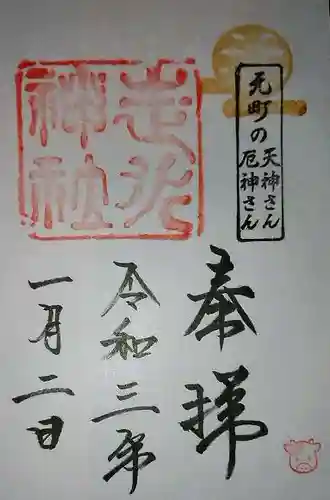 元町の
天神さん
厄神さん
走水
神社
奉拝
令和三年
一月二日